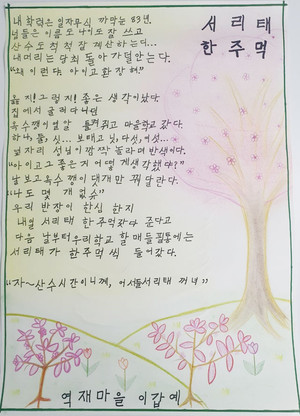 서리태
한주먹
내 학력은 일자무식 까막눈 83년.
넘들은 이름도 나이도 잘 쓰고
산수도 척척 잘 계산하는데…
내머리는 당최 돌아가덜안는다.
"왜 이런다. 아이고 환장혀"
옳지! 그렇지! 좋은 생각이났다.
집에서 굴러다니던
옥수깽이 알 들려쥐고 마을학교 갔다.
하나, 둘, 싯… 보태고 닛, 다섯, 여섯…
옆자리 서님이 깜짝 놀라며 반색이다.
"아이고 그좋은걸 어떻게 생각했다?"
날보고 옥수깽이 댓개만 꿔 달란다.
"나도 몇 개 없슈"
우리 반장이 한심 한지
내일 서리태 한주먹갖다 준다고
다음 날부터 우리학교 할매들 필통에는
서리태가 한주먹씩 들어갔다.
"자~산수시간이니께, 어서들서리태 꺼내"
역재마을 이갑예